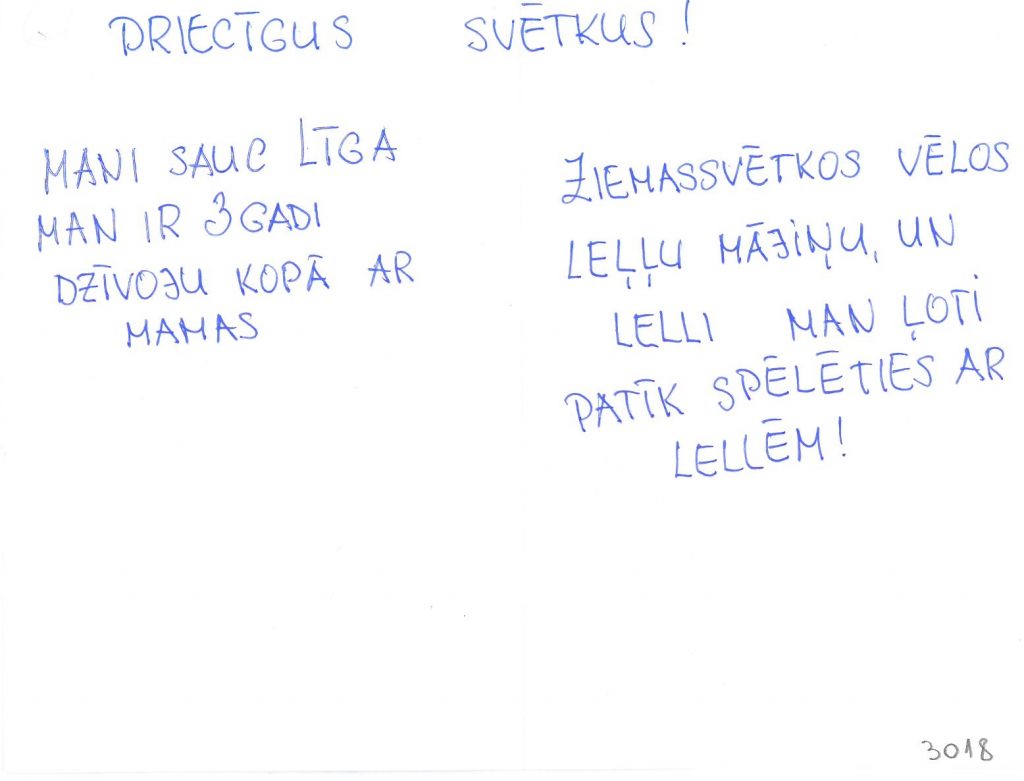 DRIECĪGUS SVĒTKUS!
MANI SAUC LĪGA
MAN IR 3 GADI
DZĪVOJU KOPĀ AR
MAMAS
ZIEMASSVĒTKOS VĒLOS
LEĻĻU MĀJIŅU, UN
LELLI MAN ĻOTI
PATĪK SPĒLĒTIES AR
LELLĒM!
3018